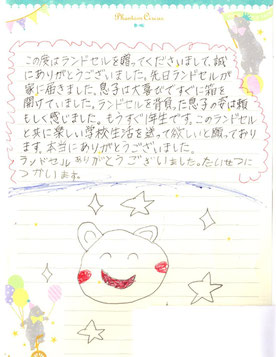 Phantom Circus
この度はランドセルを贈ってくださいまして、誠
にありがとうございました。先日ランドセルが
家に届きました。息子は大喜びですぐに箱を
開けていました。ランドセルを背負った息子の姿は頼
もしく感じました。もうすぐ1年生です。このランドセル
と共に楽しい学校生活を送って欲しいと願っており
ます。本当にありがとうございました。
ランドセルありがとうございました。たいせつに
つかいます。